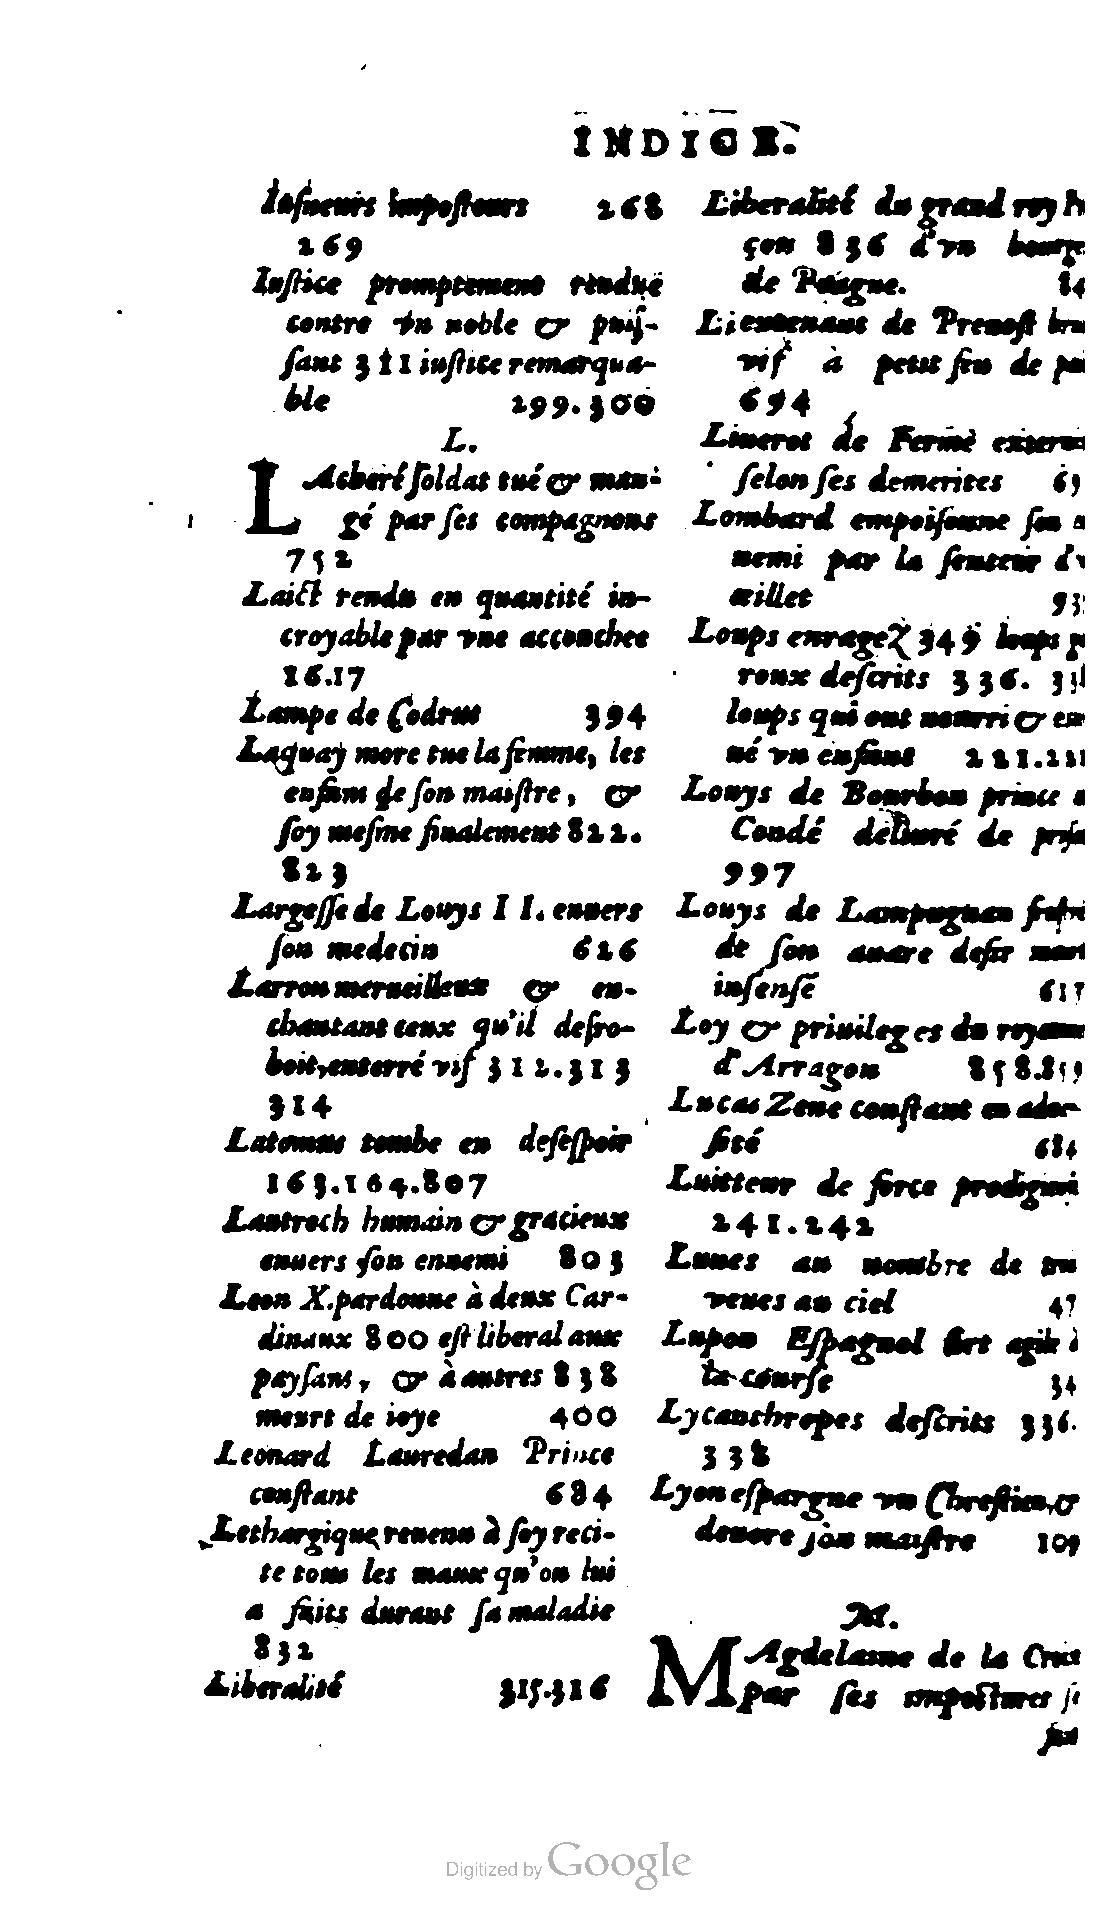 INDICE.
imposteurs 268
269
Iustice promptement rendue
contre vn noble & puis-
sant 311 iustice remarqua-
ble 299.300
L.
LAcharé soldat tué & man-
gé par ses compagnons
752
Laict rendu en quantité in-
croyable par vne accouchee
16.17
Lampe de Codrus 394
Laquay more tue la femme, les
enfans de son maistre, &
soy mesme finalement 822.
823
Largesse de Louys II. enuers
son medecin 626
Larron merueilleux & en-
chantant ceux qu'il desro-
boit, enterré vif 312.313
314
Latomus tombe en desespoir
163.164.807
Lautrech humain & gracieux
enuers son ennemi 803
Leon X. pardonne à deux Car-
dinaux 800 est liberal aux
paysans, & à autres 838
meurt de ioye 400
Leonard Lauredan Prince
constant 684
Lethargique reuenu à soy reci-
te tous les maux qu'on lui
a faits durant sa maladie
832
Liberalité 315.316
Liberalité du grand roy
çon 836 d'vn
de
Lieutenant de Preuost
vif à petit feu de
694
de Fermé
selon ses demerites
Lombard empoisonne son
nemi par la senteur
œillet
Loups enragez 349 loups
roux descrits 336.
loups qui ont nourri &
né vn enfant 221.
Louys de Bourbon prince
Condé deliuré de
997
Louys de Lampugnan
de son auare desir
insensé 617
Loy & priuileges du royaume
d'Arragon 858.859
Lucas Zene constant en aduer-
sité 684
Luitteur de force
241.242
Lunes au nombre de
venes au ciel 47
Lupon Espagnol fort agile à
la course 34
Lycanthropes descrits 336.
338
Lyon espargne vn Chrestien, &
deuore son maistre 109
M.
MAgdelaine de la
par ses impostures